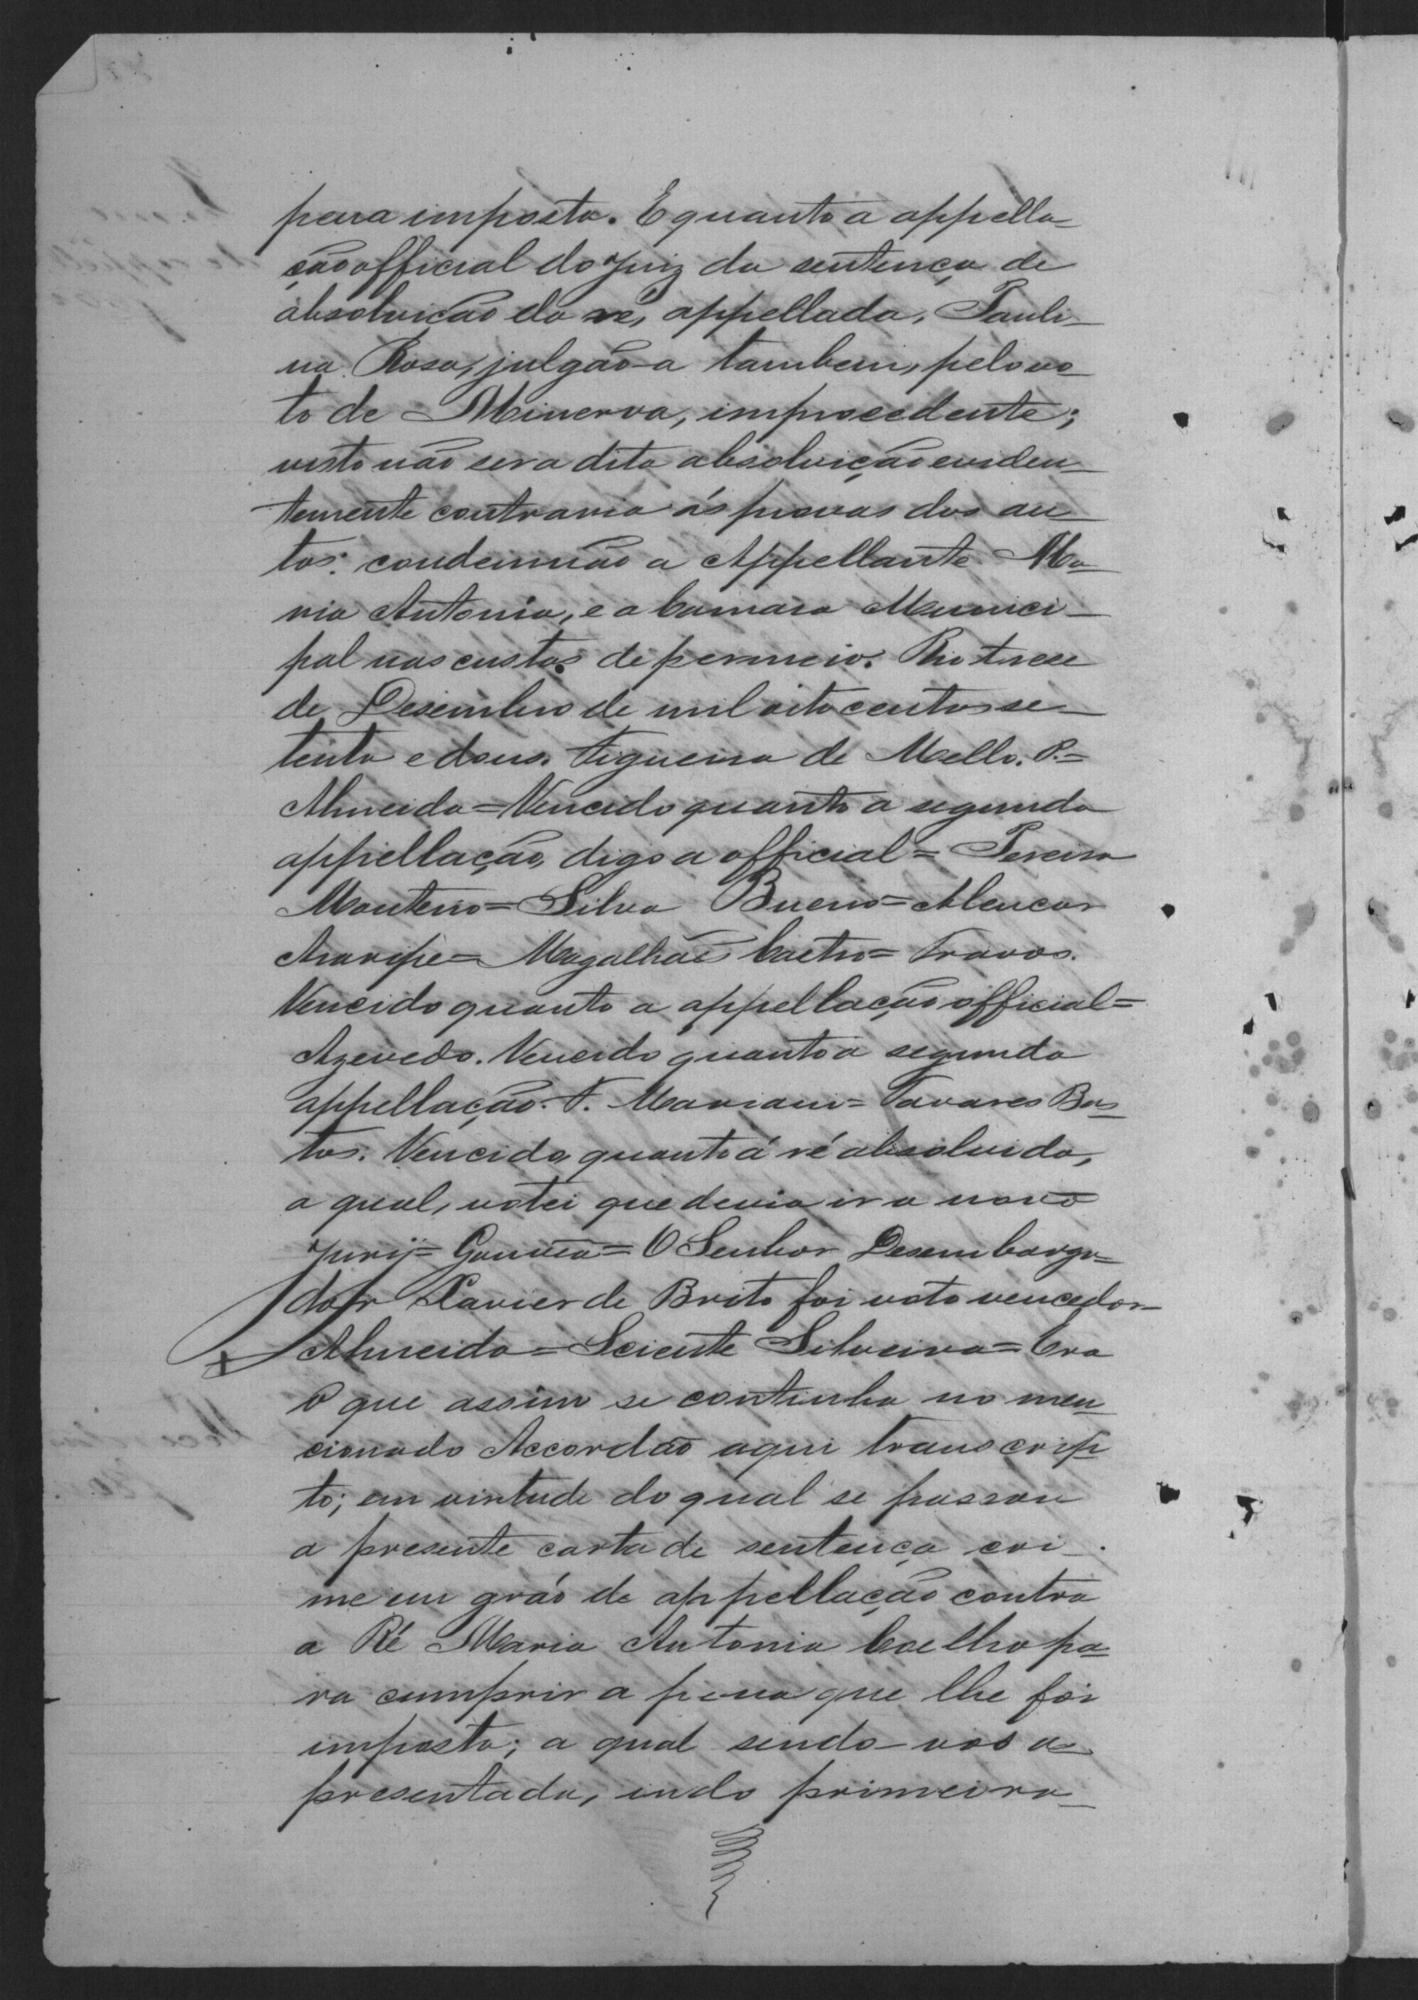 pena imposta. E quanto a appella-
ção official do Juiz da sentença de
absolvição da ré, appellada, Pauli-
na Rosa, julgão-a tambem, pelo vo-
to de Minerva, improcedente;
visto não ser a dita absolvição eviden-
temente contraria ás provas dos au-
tos: condemnão a Appellante Ma-
ria Antonia, e a Camara Munici-
pal nas custas de permeio. Rio treze
de Desembro de mil oito centos se-
tenta e dous. Figueira de Mello. P.=
Almeida=Vencido quanto a segunda
appellação, digo a official= Pereira
Monteiro= Silva Bueno= Alencar
Araripe= Magalhães Castro= Travos.
Vencido quanto a appellação official=
Azevedo. Vencido quanto a segunda
appellação. F. Mariani= Tavares Bas-
tos. Vencido quanto á ré absolvida,
a qual, votei que devia ir a novo
Jury= Gouvêa= O Senhor Desembarga-
dor Xavier de Brito foi voto vencedor-
Almeida= Sciente Silveira= Era
o que assim se continha no men-
cionado Accordão aqui transcrip-
to; em virtude do qual se passou
a presente carta de sentença cri-
me em gráo de appellação contra
a Ré Maria Antonia Coelho pa-
ra cumprir a pena que lhe foi
imposta; a qual sendo-vos a-
presentada, indo primeira-